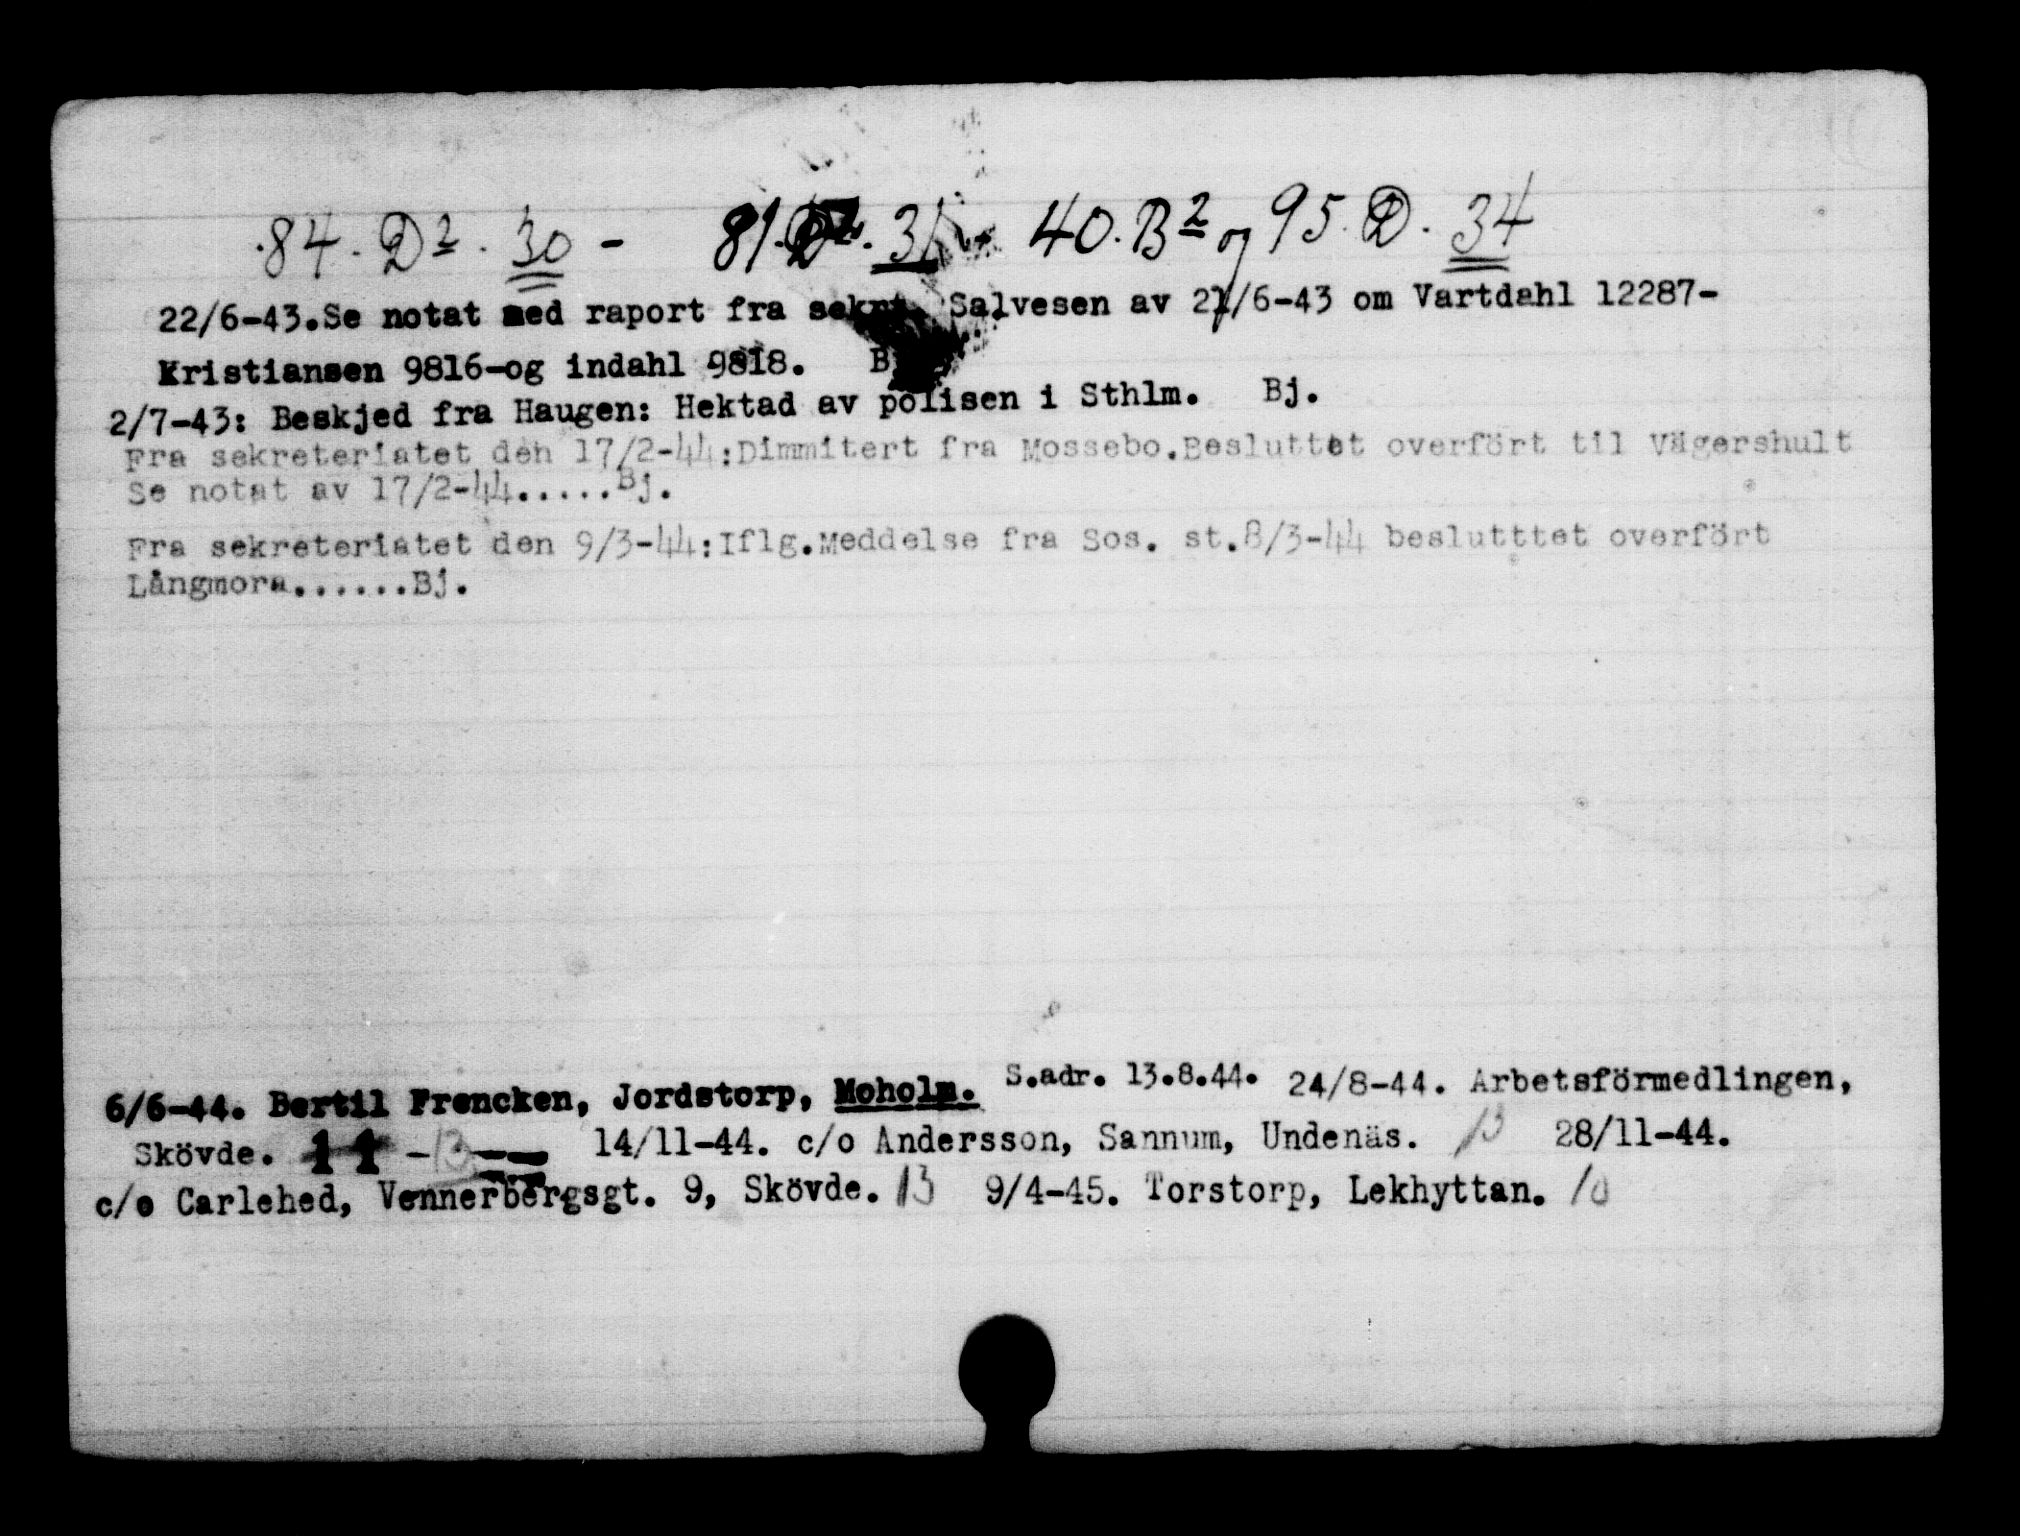 84. D². 30 - 81. D². 31 - 40. B² og 95. D. 34
22/6-43.Se notat med raport fra sekrt. Salvesen av 21/6-43 om Vartdahl 12287-
Kristiansen 9816-og indahl 9818. B
2/7-43: Beskjed fra Haugen: Hektad av polisen i Sthlm. Bj.
Fra sekreteriatet den 17/2-44:Dimmitert fra Mossebo.Besluttet overfört til Vägershult
Se notat av 17/2-44.....Bj.
Fra sekreteriatet den 9/3-44:Iflg.Meddelse fra Sos. st.8/3-44 beslutttet overfört
Långmora......Bj.
6/6-44. Bertil Frencken, Jordstorp, Moholm. S.adr. 13.8.44. 24/8-44. Arbetsförmedlingen,
Skövde. 11 - 13 14/11-44. c/o Andersson, Sannum, Undenäs. 13 28/11-44.
c/o Carlehed, Vennerbergsgt. 9, Skövde. 13 9/4-45. Torstorp, Lekhyttan. 10